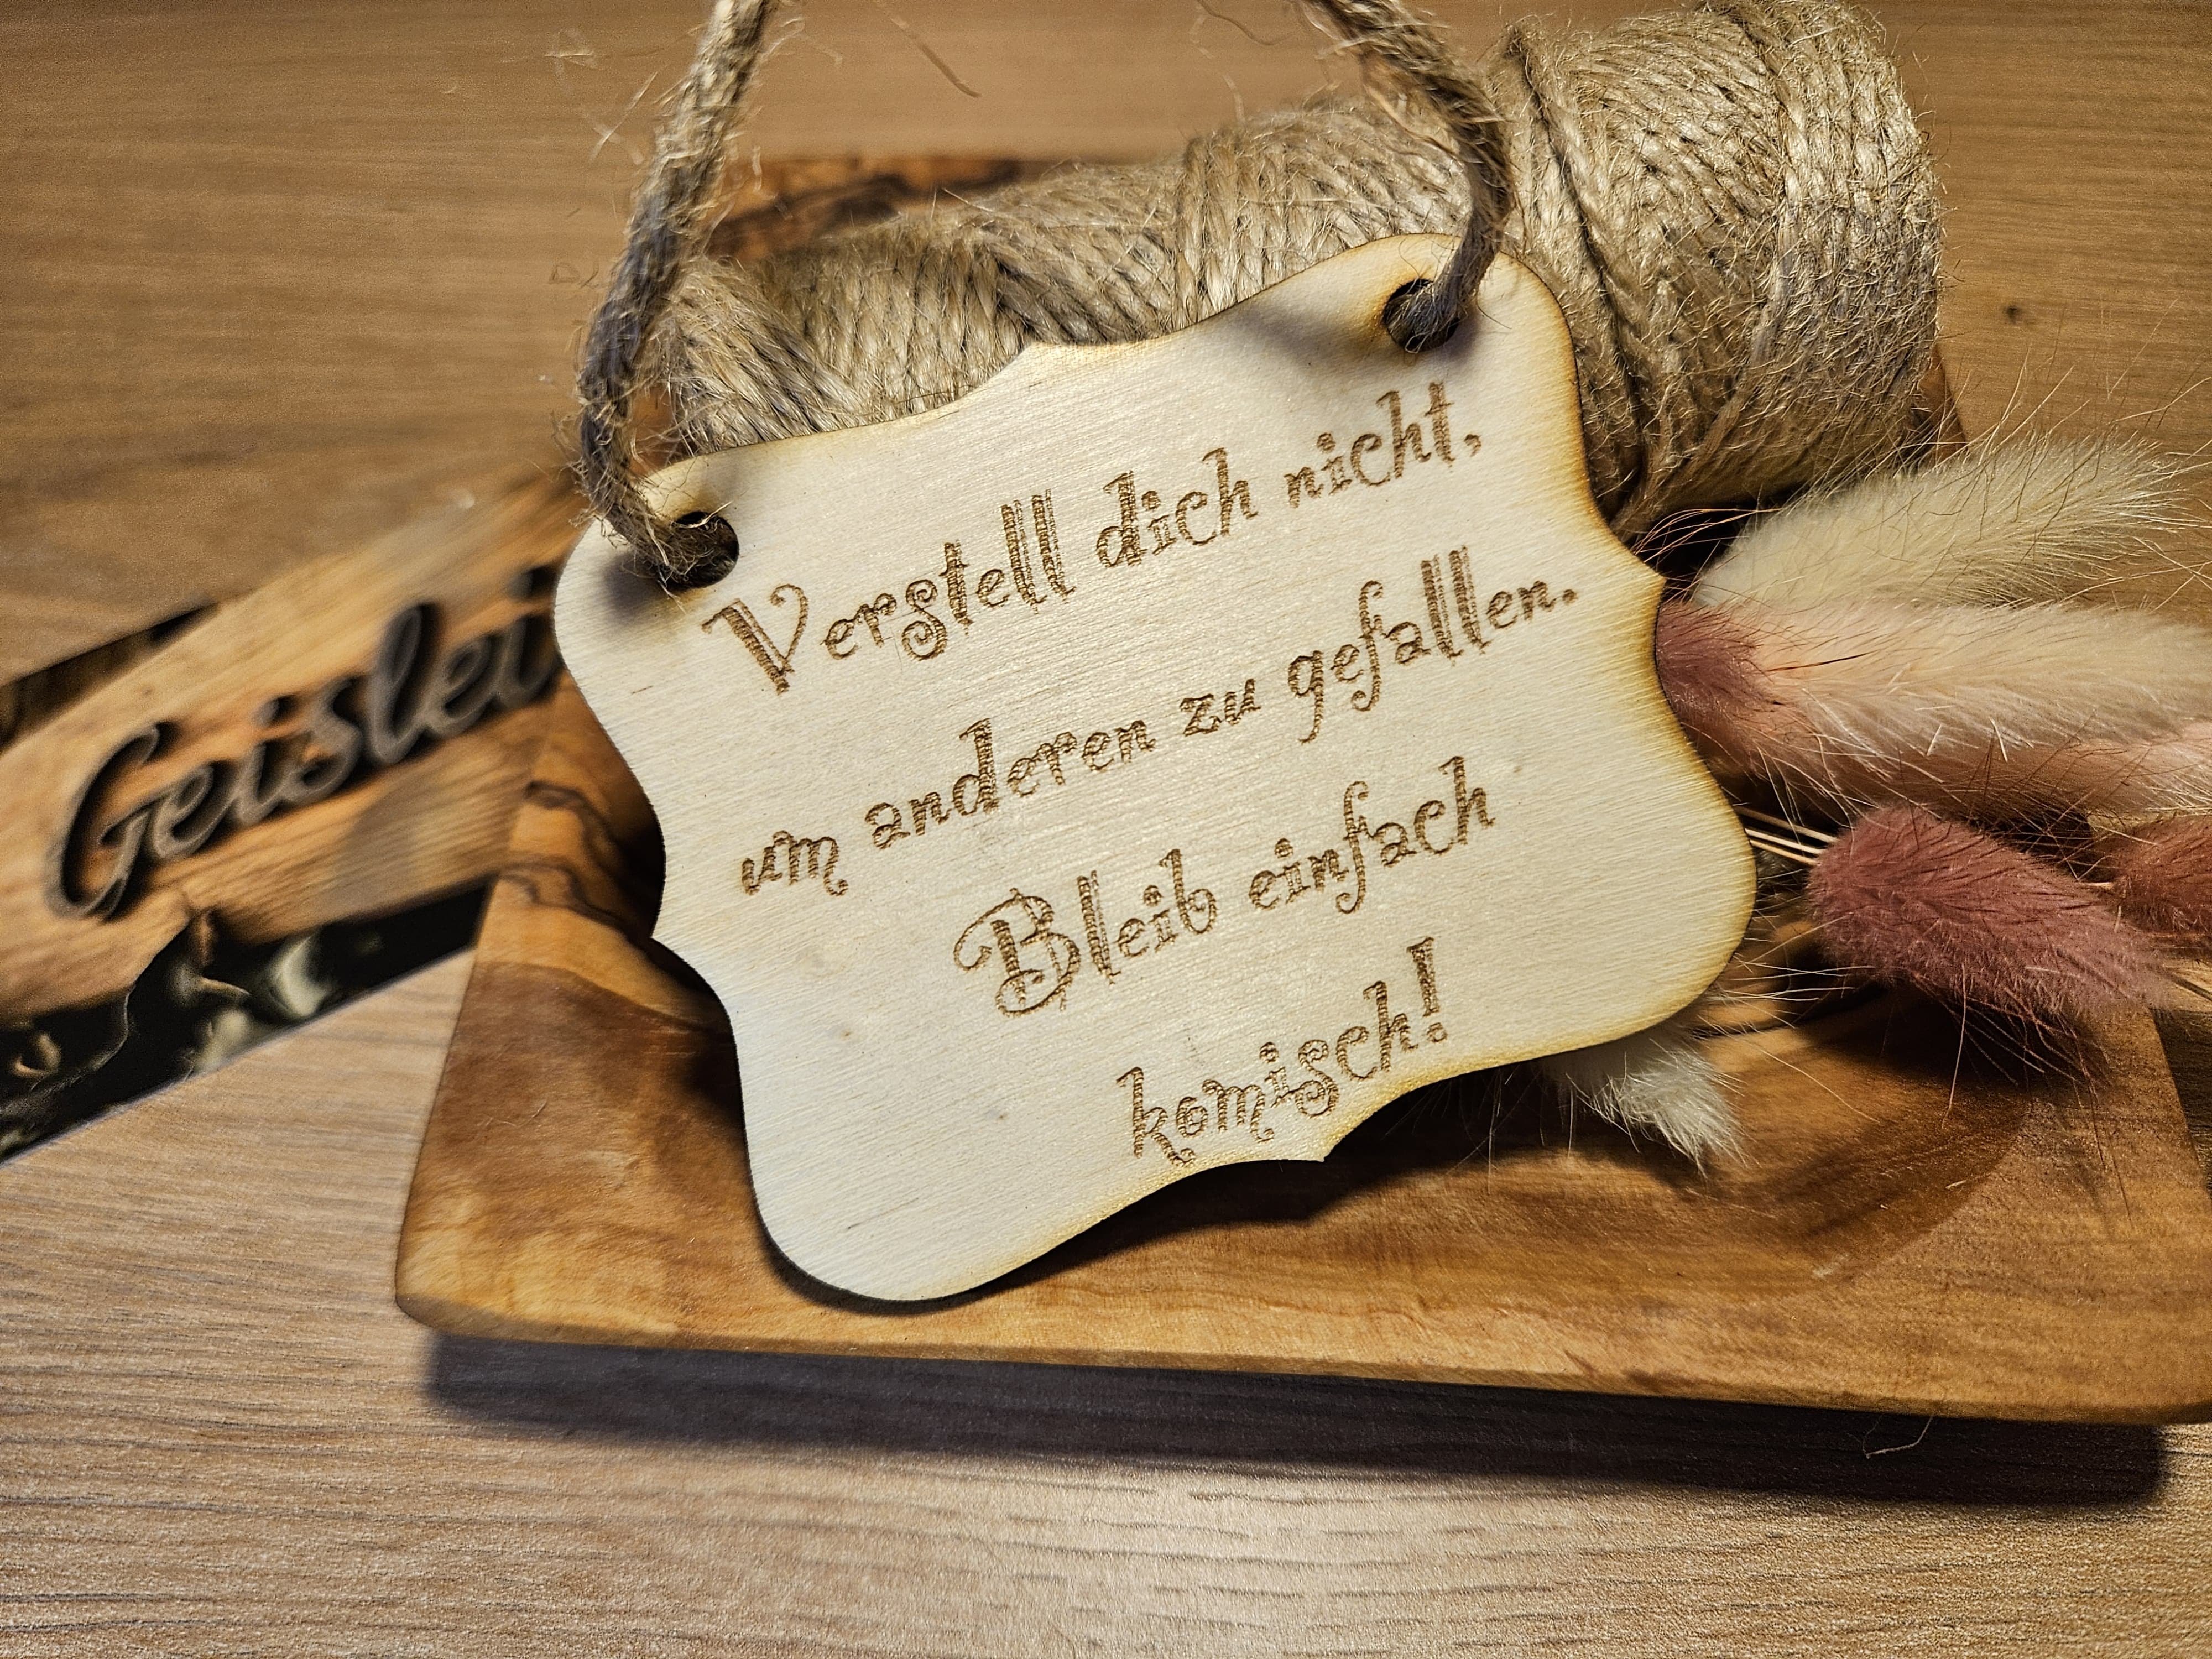 Verstell dich nicht,
um anderen zu gefallen.
Bleib einfach
komisch!